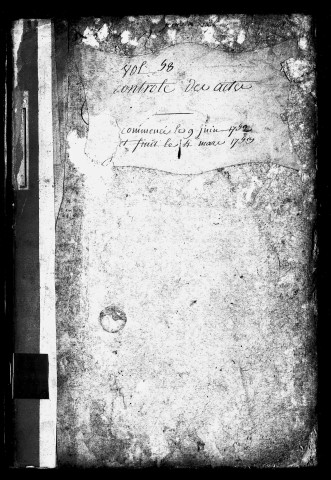 vol. 58
controle des actes
commencé le 9 juin 1752
et finit le 4 mars